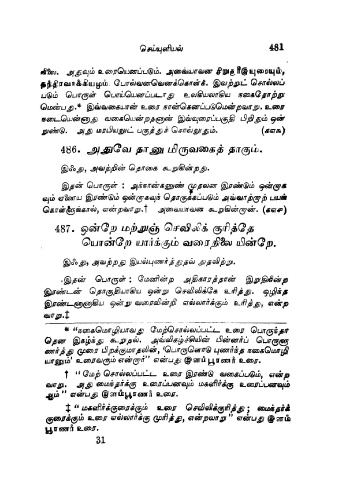 செய்யுளியல் 481
யிலை. அதுவும் உரையெனப்படும். அவையாவன சிறுகுரீஇயுரையும்,
தந்திரவாக்கியமும் போல்வனவெனக்கொள்க. இவற்றுட் சொல்லப்
படும் பொருள் பொய்யெனப்படாது உலகியலாகிய நகைதோற்று
மென்பது.* இவ்வகையான் உரை நான்கெனப்படுமென்றவாறு. உரை
நடையென்னாது வகையென்றதனான் இவ்வுரைப்பகுதி பிறிதும் ஒன்
றுண்டு. அது மரபியலுட் பகுத்துச் சொல்லுதும்.
486. அதுவே தானு மிருவகைத் தாகும்.
இஃது, அவற்றின் தொகை கூறுகின்றது.
இதன் பொருள் : அந்நான்கனுண் முதலன இரண்டும் ஒன்றாக
வும் ஏனைய இரண்டும் ஒன்றாகவுந் தொகுக்கப்படும் அவ்வாற்றாற் பயன்
கொள்ளுங்கால், என்றவாறு.† அவையாவன கூறுகின்றான்.
487. ஒன்றே மற்றுஞ் செவிலிக் குரித்தே
யொன்றே யார்க்கும் வரைநிலை யின்றே.
இஃது, அவற்றது இயல்புணர்த்துதல் நுதலிற்று.
இதன் பொருள் : மேனின்ற அதிகாரத்தான் இறுதிநின்ற
இரண்டன் தொகுதியாகிய ஒன்று செவிலிக்கே உரித்து. ஒழிந்த
இரண்டனானாகிய ஒன்று வரைவின்றி எல்லார்க்கும் உரித்து, என்ற
வாறு.‡
* “நகைமொழியாவது மேற்சொல்லப்பட்ட உரை பொருந்தா
தென இகழ்ந்து கூறுதல். அவ்விகழ்ச்சியின் பின்னர்ப் பொருளு
ணர்த்து முரை பிறக்குமாதலின், ‘பொருளொடு புணர்ந்த நகைமொழி
யானும்’ உரைவரும் என்றார்” என்பது இளம்பூரணர் உரை.
† “மேற் சொல்லப்பட்ட உரை இரண்டு வகைப்படும், என்ற
வாறு. அது மைந்தர்க்கு உரைப்பனவும் மகளிர்க்கு உரைப்பனவும்
ஆம்” என்பது இளம்பூரணர் உரை.
‡ “மகளிர்க்குரைக்கும் உரை செவிலிக்குரித்து ; மைந்தர்க்
குரைக்கும் உரை எல்லார்க்கு முரித்து, என்றவாறு” என்பது இளம்
பூரணர் உரை.
31